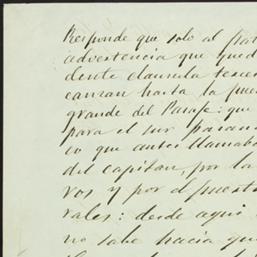 Responde que solo al par
advertencia que qued
dente clausula tercer
canzan hasta la pue
grande del Parage: que
para el sur pasan
co que antes llamab
del capitan, por la
vos y por el puest
rales: desde aqui
no sabe hacia que